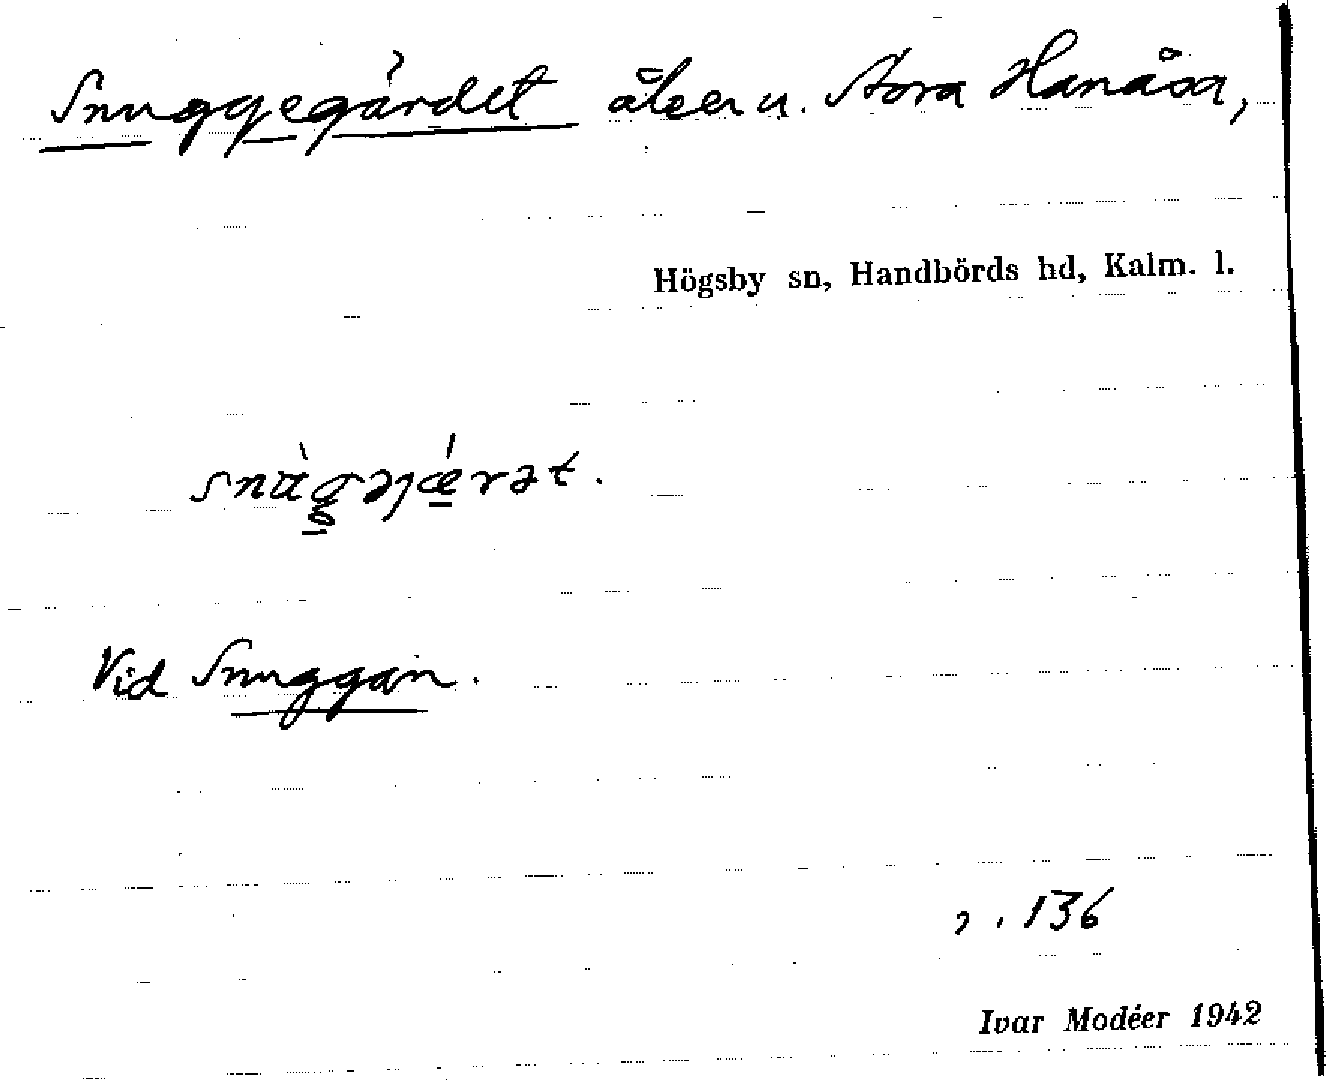 Snuggegärdet åker u. Stora Hanåsa,
Högsby sn, Handbörds hd, Kalm. l.
Vid Snuggan.
136
Ivar Modéer 1942